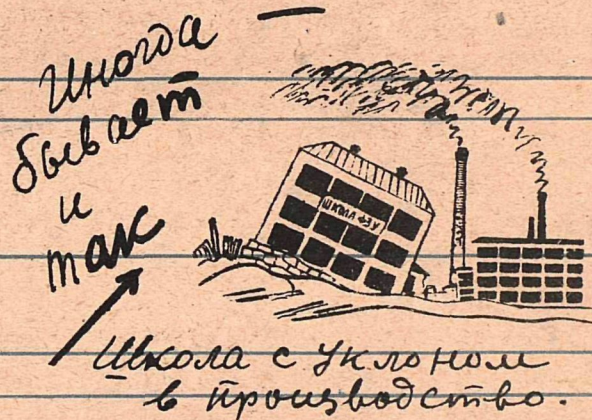 Иногда
бывает
и
так
ШКОЛА ФЗУ
Школа с уклоном
в производство.